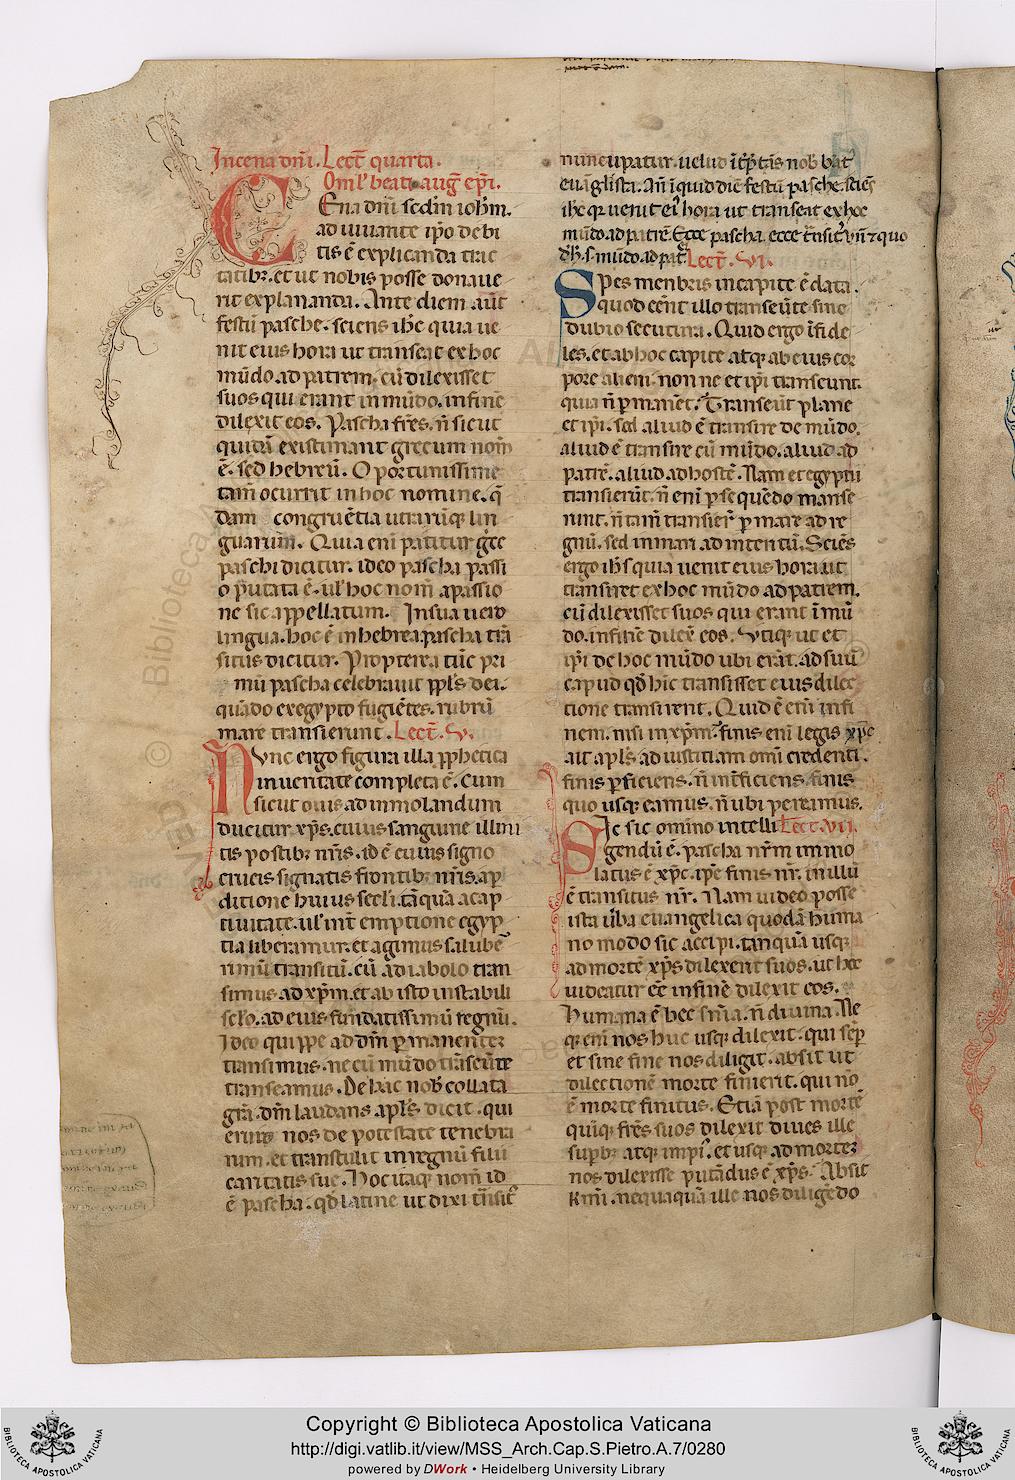 In cena dñi. Lectͦ quarta.
Omł' beati augͥ epͥi.
Cena dñi scdm ioħm.
adiuuante ip̄o debi
tis ē explicanda trac
tatibꝫ. et ut nobis posse donaue
rit explananda. Ante diem aūt
festū pasche. sciens iħc quia ue
nit eius hora ut transeat ex hoc
mūdo ad patrem. cū dilexisset
suos qui erant in mūdo. in finē
dilexit eos. Pascha frēs. ñ sicut
quidā existimant grecum nom̄
ē. sed hebreū. Oportunissime
tam̄ ocurrit in hoc nomine. q̄
dam congruētia utrarūqꝫ lin
guarum. Quia eni patitur g̅ce
paschi dicitur. ideo pascha passi
o putata ē. uł' hoc nom̄ a passio
ne sic appellatum. In sua uero
lingua. hoc ē in hebrea pascha trā
situs dicitur. Propterea tūc pri
mū pascha celebrauit ppłs dei.
quādo ex egypto fugiētes. rubrū
mare transierunt. Lectͦ. V.
Nvnc ergo figura illa pphetica
in ueritate completa ē. Cum
sicut ouis ad immolandum
ducitur xp̄s. cuius sanguine illini
tis postibꝫ nr̄is. id ē cuius signo
crucis signatis frontibꝫ nr̄is. a p̄
ditione huius secłi. tā quā a cap
tiuitate. uł' int̄ emptione egyp
tia liberamur. et agimus salube
rimū transitū. cū a diabolo tran
simus ad xp̄m. et ab isto instabili
secło. ad eius fundatissimū regnū.
Ideo quippe ad dm̄ pmanentē
transimus. ne cū mūdo trāseūte
transeamus. De hac nob̄ collata
grā. dm̄ laudans apłs dicit. qui
eruit nos de potestate tenebra
rum. et transtulit in regnū filii
caritatis sue. Hoc itaqꝫ nom̄ id
ē pascha. qđ latine ut dixi trāsitꝰ
nuncupatur. uelud ītp̄tās nob̄ bat̄
euāglista. Añ īquid diē festū pasche. sciēs
iħc qꝛ uenit eiꝰ hora ut transeat ex hoc
mūdo ad patrē. Ecce pascha. ecce trāsitꝰ. vñ ⁊ quo
đħ. s. mūdo ad patr̄ Lectͦ. VI.
Spes menbris in capite ē data.
quod eent illo transeūte sine
dubio secutura. Quid ergo īfide
les. et ab hoc capite atqꝫ ab eius cor
pore alieni. nonne et ip̄i transeunt.
quia ñ pmanēt. Transeūt plane
et ip̄i. sed aliud ē transire de mūdo.
aliud ē transire cū mūdo. aliud ad
patrē. aliud ad hostē. Nam et egyptii
transierūt. ñ eni p se quēdo manse
runt. ñ tam̄ transierꝰ p mare ad re
gnū. sed in mari ad interitū. Sciēs
ergo iħs quia uenit eius hora. ut
transiret ex hoc mūdo ad patrem.
cū dilexisset suos qui erant ī mū
do. in finē dilexͭ eos. Vtiqꝫ ut et
ip̄i de hoc mūdo ubi erāt. ad suū
capud qđ hīc transisset eius dilec
tione transirent. Quid ē eni in fi
nem. nisi in xp̄m. finis eni legis xp̄c
ait apłs ad iustitiam omī credenti.
finis pficiens. ñ int̄ficiens. finis
quo usqꝫ eamus. ñ ubi pereamus.
Sic sic omīno intelli Lectͦ. VII.
gendū ē. pascha nr̄m immo
latus ē xp̄c. ip̄e finis nr̄. in illū
ē transitus nr̄. Nam uideo posse
ista ūba euangelica quodā huma
no modo sic accipi. tanquā usqꝫ
ad mortē xp̄s dilexerit suos. ut hec
uideatur eē in finē dilexit eos.
Humana ē hec sn̄ia. ñ diuina. Ne
qꝫ eni nos huc usqꝫ dilexit. qui sep̄
et sine fine nos diligit. absit ut
dilectionē morte finierit. qui nō
ē morte finitus. Etiā post mortē
quīqꝫ frēs suos dilexit diues ille
supbꝫ atqꝫ impiꝰ. et usqꝫ ad mortē
nos dilexisse putādus ē xp̄s. Absit
kmī. nequaquā ille nos diligēdo
Copyright © Biblioteca Apostolica Vaticana
http://digi.vatlib.it/view/MSS_Arch.Cap.S.Pietro.A.7/0280
powered by DWork • Heidelberg University Library
BIBLIOTECA APOSTOLICA VATICANA
BIBLIOTECA APOSTOLICA VATICANA